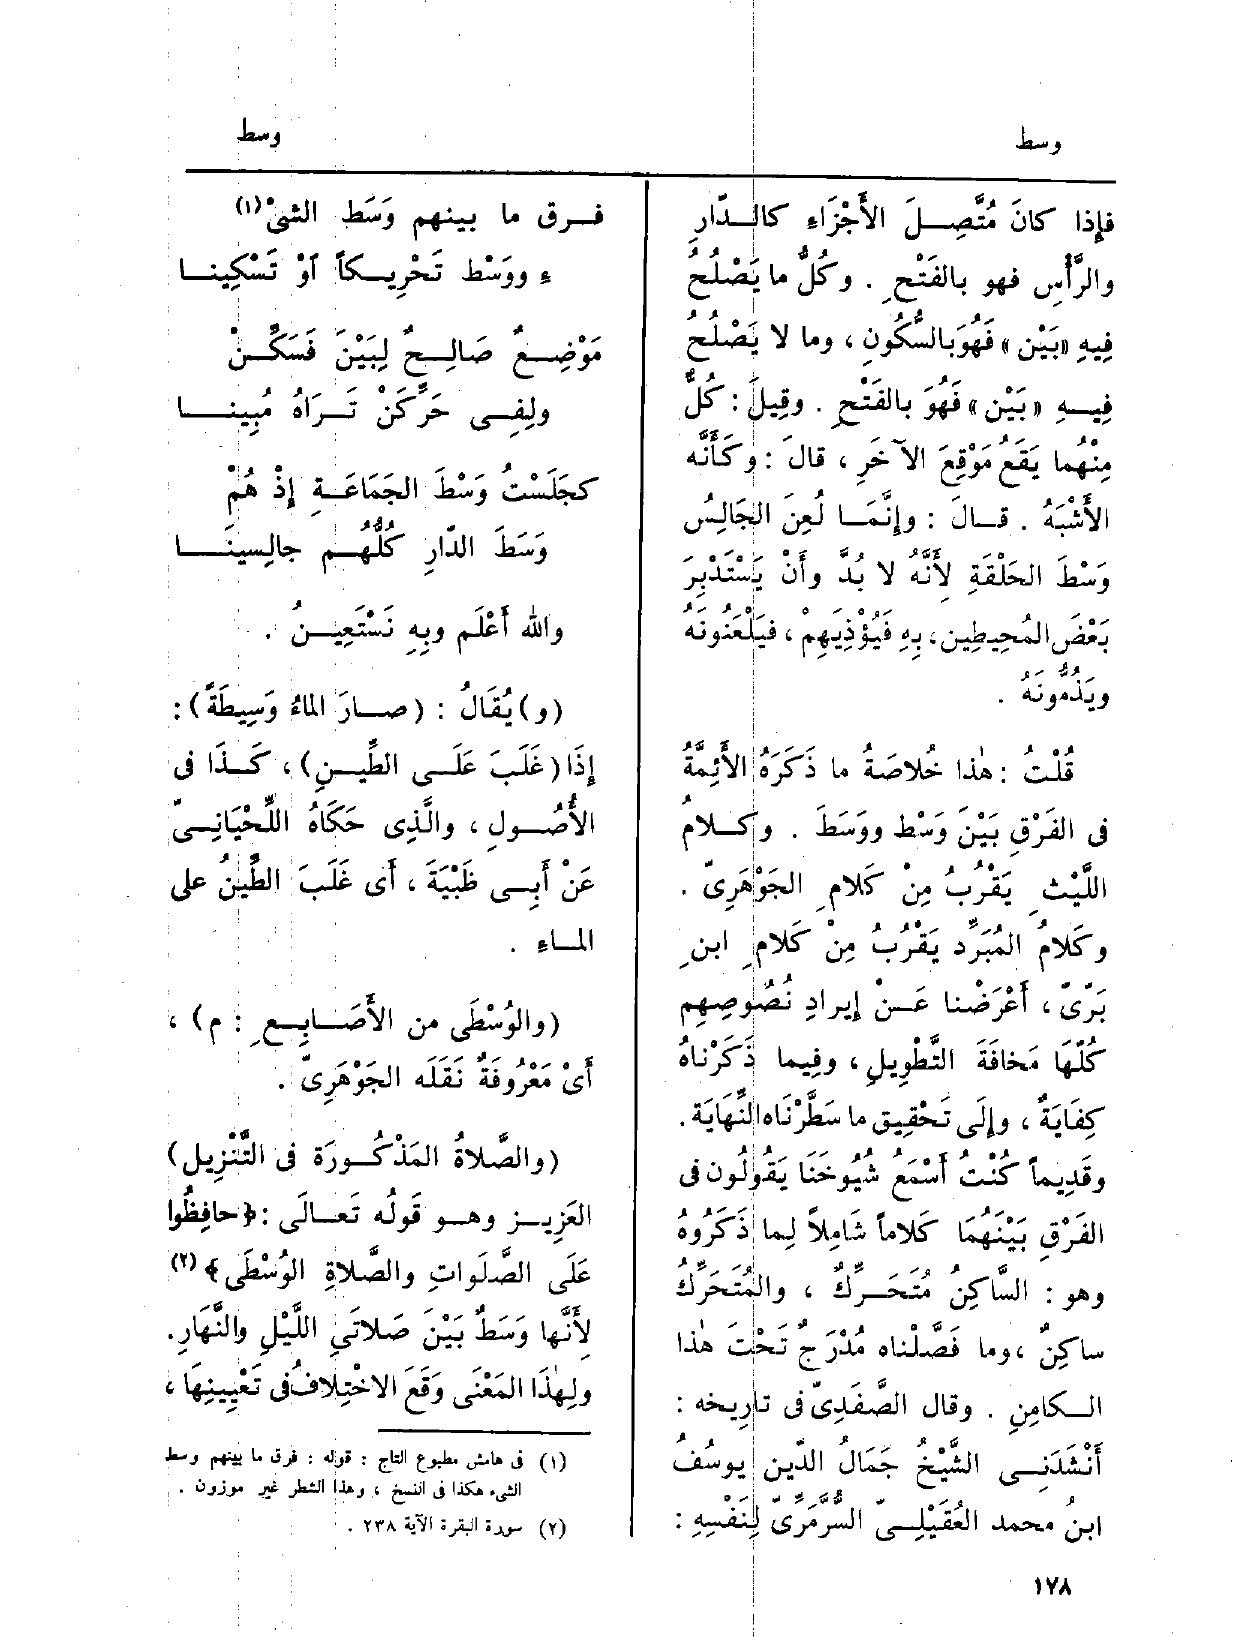 وسط
وسط
فإذا كانَ مُتَّصِلَ الأَجْزَاءِ كالدّارِ
والرَّأْسِ فهو بالفَتْحِ . وكُلُّ ما يَصْلُحُ
فِيهِ «بَيْن» فَهُوَ بالسُّكُونِ ، وما لا يَصْلُحُ
فِيهِ «بَيْن» فَهُوَ بالفَتْحِ . وقِيلَ : كُلٌّ
مِنْهُما يَقَعُ مَوْقِعَ الآخَرِ ، قالَ : وكَأَنَّه
الأَشْبَهُ . قالَ : وإِنَّمَا لُعِنَ الجَالِسُ
وَسْطَ الحَلْقَةِ لأَنَّهُ لا بُدَّ وأَنْ يَسْتَدْبِرَ
بَعْضَ المُحِيطِين، بِهِ فَيُؤْذِيَهِمْ ، فيَلْعَنُونَهُ
ويَذُمُّونَهُ .
قُلْتُ : هٰذا خُلاصَةُ ما ذَكَرَهُ الأَئِمَّةُ
فى الفَرْقِ بَيْنَ وَسْط ووَسَطَ . وكلامُ
اللَّيْثِ يَقْرُبُ مِنْ كَلامِ الجَوْهَرِىّ .
وكَلامُ المُبَرِّد يَقْرُبُ مِنْ كَلامِ ابنِ
بَرّىّ ، أَعْرَضْنا عَنْ إِيرادِ نُصُوصِهِم
كُلّهَا مَخافَةَ التَّطْوِيلِ ، وفِيما ذَكَرْناهُ
كِفَايَةٌ ، وإِلَى تَحْقِيق ما سَطَّرْنَاه النِّهَايَة.
وقَدِيماً كُنْتُ أَسْمَعُ شُيُوخَنَا يَقُولُون فى
الفَرْقِ بَيْنَهُمَا كَلاماً شَامِلاً لِما ذَكَرُوهُ
وهو : السَّاكِنُ مُتَحَرِّكٌ ، والمُتَحَرِّكُ
ساكِنٌ ، وما فَصَّلْناه مُدْرَجٌ تَحْتَ هٰذا
الكامِنِ . وقال الصَّفَدِىّ فى تاريخه :
أَنْشَدَنِى الشَّيْخُ جَمَالُ الدّين يوسُفُ
ابنُ محمد العُقَيْلِىّ السُّرَّمَرِّىّ لِنَفْسِهِ :
فرق ما بينهم وَسَط الشىْ(١)
ءِ ووَسْط تَحْرِيكاً أَوْ تَسْكِينا
مَوْضِعٌ صَالِحٌ لِبَيْنَ فَسَكِّنْ
ولِفِى حَرِّكَنْ تَرَاهُ مُبِينا
كجَلَسْتُ وَسْطَ الجَمَاعَةِ إِذْ هُمْ
وَسَطَ الدّارِ كُلُّهُم جالِسِينَا
والله أَعْلَم وبِهِ نَسْتَعِينُ .
(و)يُقَالُ : (صارَ الماءُ وَسِيطَةً) :
إِذَا (غَلَبَ عَلَى الطِّينِ) ، كَذَا فى
الأُصُولِ ، والَّذِى حَكَاهُ اللِّحْيَانِىّ
عَنْ أَبِى ظَبْيَةَ ، أَى غَلَبَ الطِّينُ على
الماءِ .
(والوُسْطَى من الأَصَابِعِ : م) ،
أَىْ مَعْرُوفَةٌ نَقَلَه الجَوْهَرِىّ .
(والصَّلاةُ المَذْكُورَة فى التَّنْزِيل)
العَزِيز وهو قَولُه تَعالَى : ﴿حافِظُوا
عَلَى الصَّلَواتِ والصَّلاةِ الوُسْطَى﴾ (٢)
لأَنَّها وَسَطٌ بَيْنَ صَلاتَىِ اللَّيْلِ والنَّهَارِ.
ولِهٰذَا المَعْنَى وَقَعَ الاخْتِلافُ فى تَعْيِينِهَا ،
(١) فى هامش مطبوع التاج : قوله : فرق ما بينهم وسط
الشىء هكذا فى النسخ ، وهذا الشطر غير موزون .
(٢) سورة البقرة الآية ٢٣٨ .
١٧٨